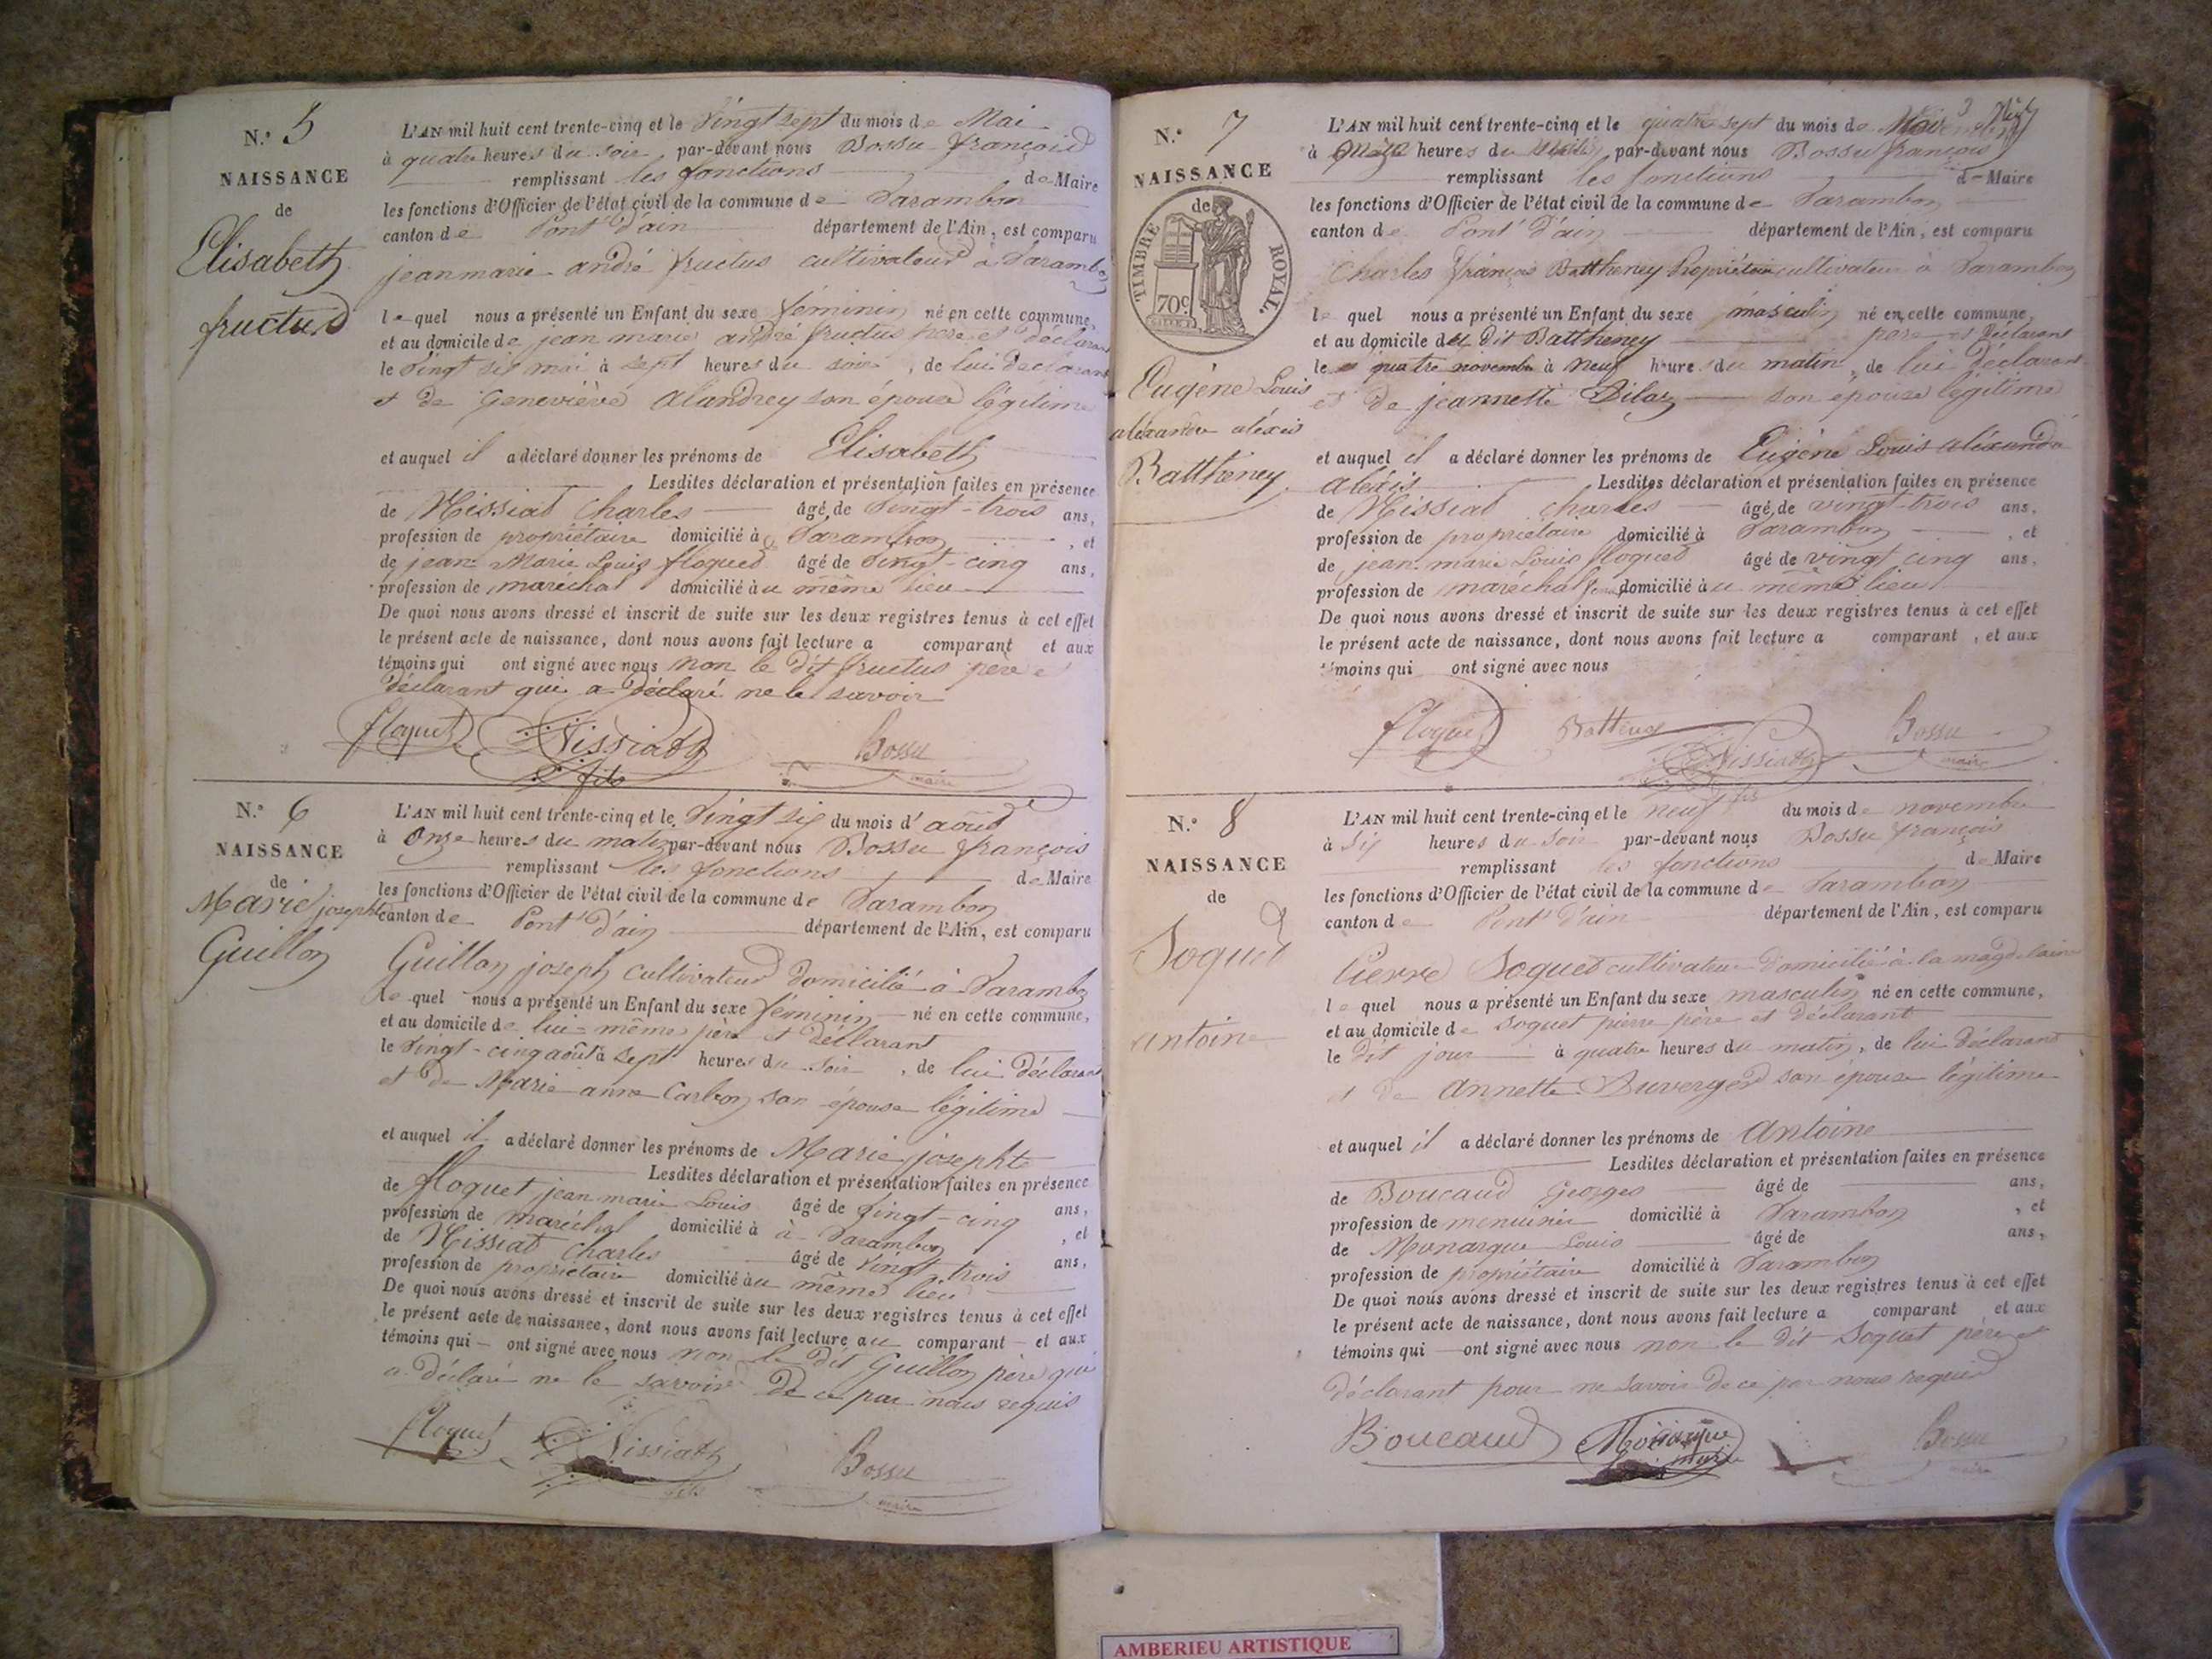 N.° 5
NAISSANCE
de
Elisabeth
fructus
L'AN mil huit cent trente-cinq et le vingt sept du mois de Mai
à quatre heures du soir par-devant nous Bossu françois
remplissant les fonctions de Maire
les fonctions d'Officier de l'état civil de la commune de Varambon
canton de Pont d'ain département de l'Ain, est comparu
jean marie andré fructus cultivateur à Varambon
lequel nous a présenté un Enfant du sexe féminin né en cette commune,
et au domicile de jean marie andré fructus père et déclarant
le vingt six mai à sept heures du soir, de lui déclarant
et de Geneviève Alandrey son épouse légitime
et auquel il a déclaré donner les prénoms de Elisabeth
Lesdites déclaration et présentation faites en présence
de Missiat Charles âgé de vingt-trois ans,
profession de propriétaire domicilié à Varambon, et
de jean Marie Louis floquet âgé de vingt-cinq ans,
profession de maréchal domicilié au même lieu
De quoi nous avons dressé et inscrit de suite sur les deux registres tenus à cet effet
le présent acte de naissance, dont nous avons fait lecture a comparant et aux
témoins qui ont signé avec nous non le dit fructus père et
déclarant qui a déclaré ne le savoir
floquet Missiat fils Bossu maire
N.° 6
NAISSANCE
de
Marie josephte
Guillon
L'AN mil huit cent trente-cinq et le vingt six du mois d'août
à onze heures du matin par-devant nous Bossu françois
remplissant les fonctions de Maire
les fonctions d'Officier de l'état civil de la commune de Varambon
canton de Pont d'ain département de l'Ain, est comparu
Guillon joseph cultivateur domicilié à Varambon
lequel nous a présenté un Enfant du sexe féminin né en cette commune,
et au domicile de lui-même père et déclarant
le vingt-cinq août à sept heures du soir, de lui déclarant
et de Marie anne Carbon son épouse légitime
et auquel il a déclaré donner les prénoms de Marie josephte
Lesdites déclaration et présentation faites en présence
de floquet jean marie Louis âgé de vingt-cinq ans,
profession de maréchal domicilié à à Varambon, et
de Missiat Charles âgé de vingt trois ans,
profession de propriétaire domicilié au même lieu
De quoi nous avons dressé et inscrit de suite sur les deux registres tenus à cet effet
le présent acte de naissance, dont nous avons fait lecture au comparant et aux
témoins qui ont signé avec nous non le dit Guillon père qui
a déclaré ne le savoir de ce par nous requis
floquet Missiat fils Bossu maire
N.° 7
NAISSANCE
de
TIMBRE ROYAL.
70c
Eugène Louis
alexandre aléxis
Battheney
L'AN mil huit cent trente-cinq et le quatre du mois de
à heures du par-devant nous Bossu françois
remplissant les fonctions de Maire
les fonctions d'Officier de l'état civil de la commune de Varambon
canton de Pont d'ain département de l'Ain, est comparu
Charles françois Battheney Propriétaire cultivateur à Varambon
lequel nous a présenté un Enfant du sexe masculin né en cette commune,
et au domicile du dit Battheney père et déclarant
le quatre novembre à neuf heures du matin, de lui déclarant
et de jeannette Dilas son épouse légitime
et auquel il a déclaré donner les prénoms de Eugène Louis aléxandre
aléxis Lesdites déclaration et présentation faites en présence
de Missiat charles âgé de vingt-trois ans,
profession de propriétaire domicilié à Varambon, et
de jean marie Louis floquet âgé de vingt cinq ans,
profession de maréchal domicilié au même lieu
De quoi nous avons dressé et inscrit de suite sur les deux registres tenus à cet effet
le présent acte de naissance, dont nous avons fait lecture a comparant, et aux
témoins qui ont signé avec nous
floquet Missiat fils Bossu maire
N.° 8
NAISSANCE
de
Soquet
antoine
L'AN mil huit cent trente-cinq et le neuf du mois de novembre
à six heures du soir par-devant nous Bossu françois
remplissant les fonctions de Maire
les fonctions d'Officier de l'état civil de la commune de Varambon
canton de Pont d'ain département de l'Ain, est comparu
Pierre Soquet cultivateur domicilié à la magdelaine
lequel nous a présenté un Enfant du sexe masculin né en cette commune,
et au domicile de soquet pierre père et déclarant
le dit jour à quatre heures du matin, de lui déclarant
et de Annette Duverger son épouse légitime
et auquel il a déclaré donner les prénoms de Antoine
Lesdites déclaration et présentation faites en présence
de Boucaud Georges âgé de ans,
profession de menuisier domicilié à Varambon, et
de Monarque Louis âgé de ans,
profession de propriétaire domicilié à Varambon
De quoi nous avons dressé et inscrit de suite sur les deux registres tenus à cet effet
le présent acte de naissance, dont nous avons fait lecture a comparant et aux
témoins qui ont signé avec nous non le dit Soquet père et
déclarant pour ne savoir de ce par nous requis
Boucaud Monarque Bossu maire
AMBERIEU ARTISTIQUE